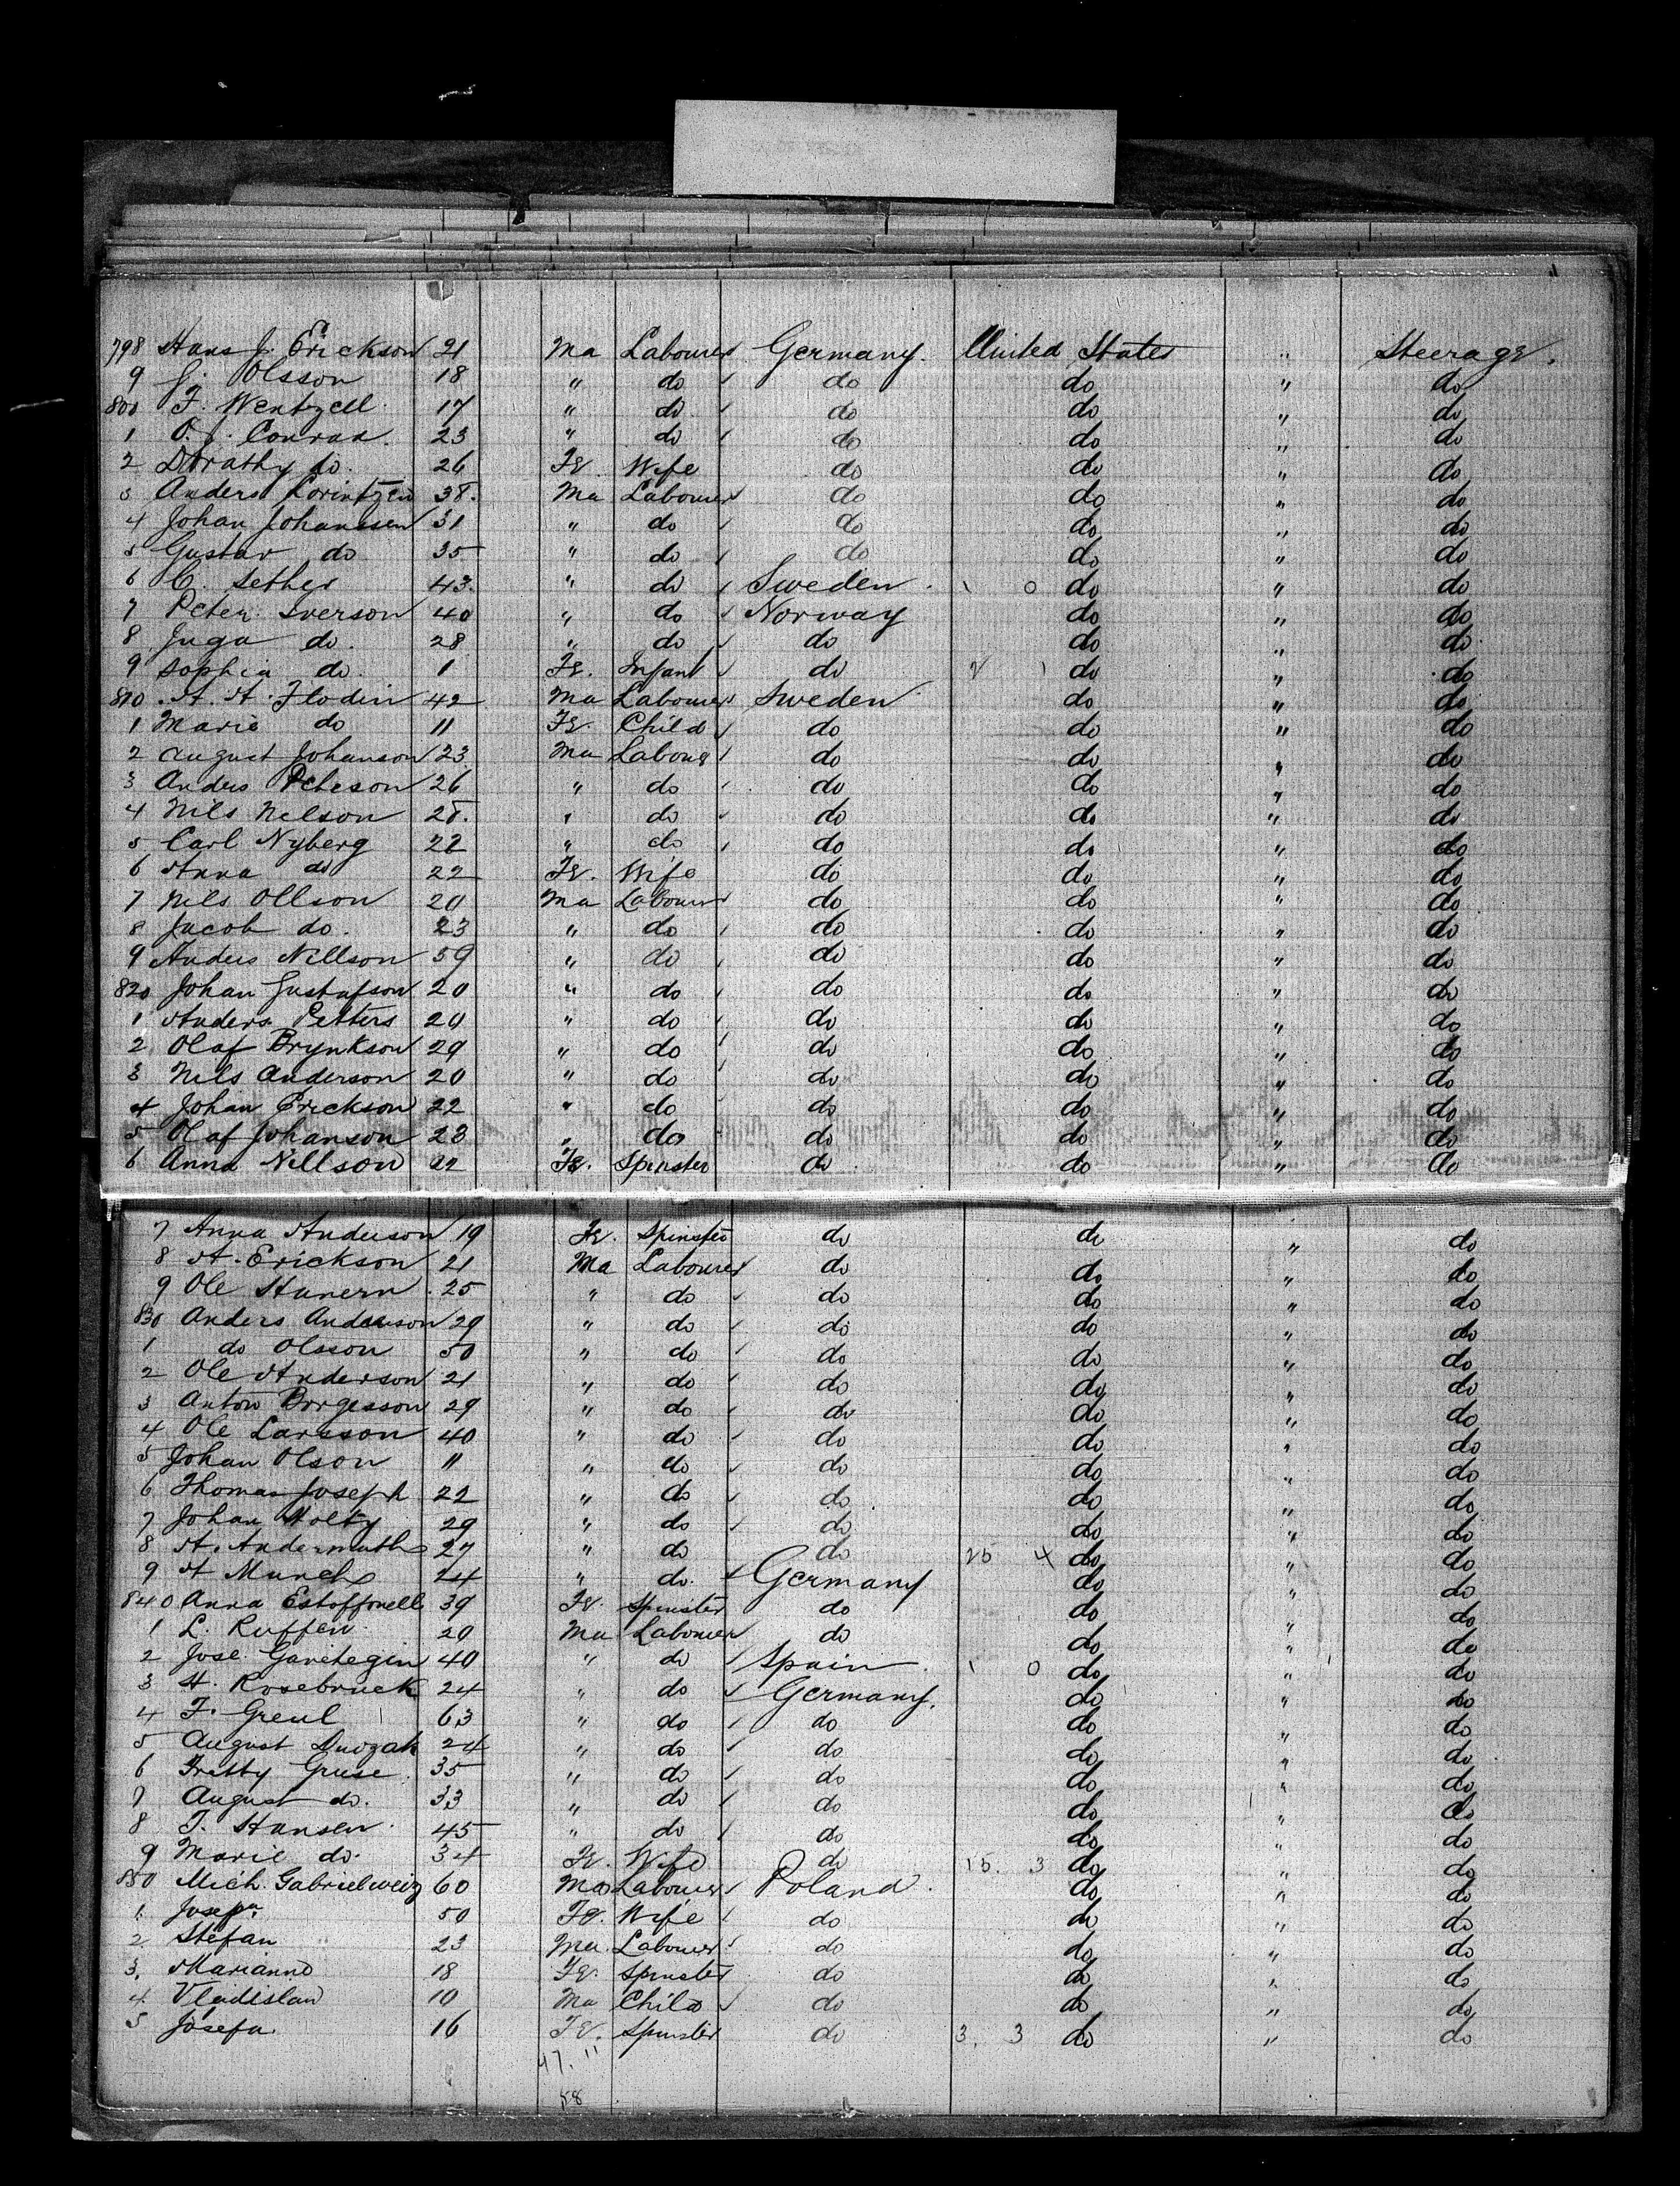 798 Hans J. Erickson 21 Ma Labourer Germany. United States " Steerage.
9 J. Olsson 18 " do do do " do
800 F. Wentzell 17 " do do do " do
1 O. J. Conrad. 23 " do do do " do
2 Dorathy do. 26 Fe. Wife do do " do
3 Anders Lorintzen 38. Ma Labourer do do " do
4 Johan Johanssen 31 " do do do " do
5 Gustav do 35 " do do do " do
6 C. Sether 43. " do Sweden. 1 0 do " do
7 Peter Iverson 40 " do Norway do " do
8 Inga do. 28 " do do do " do
9 Sophia do. 1 Fe. Infant do 2 1 do " do
810 A. A. Flodin 42 Ma Labourer Sweden do " do
1 Marie do 11 Fe. Child do do " do
2 August Johanson 23 Ma Labour do do " do
3 Anders Peterson 26 " do do do " do
4 Nils Nelson 28. " do do do " do
5 Carl Nyberg 22 " do do do " do
6 Anna do 22 Fe. Wife do do " do
7 Nils Ollson 20 Ma Labourer do do " do
8 Jacob do. 23 " do do do " do
9 Anders Nillson 59 " do do do " do
820 Johan Gustafson 20 " do do do " do
1 Anders Petters 20 " do do do " do
2 Olaf Brynkson 29 " do do do " do
3 Nils Anderson 20 " do do do " do
4 Johan Erickson 22 " do do do " do
5 Olaf Johanson 23 " do do do " do
6 Anna Nillson 22 Fe. Spinster do do " do
7 Anna Anderson 19 Fe. Spinster do do " do
8 A. Erickson 21 Ma Labourer do do " do
9 Ole Hanern 25 " do do do " do
830 Anders Anderson 29 " do do do " do
1 do Olsson 50 " do do do " do
2 Ole Anderson 21 " do do do " do
3 Anton Borgesson 29 " do do do " do
4 Ole Larsson 40 " do do do " do
5 Johan Olson 11 " do do do " do
6 Thomas Joseph 22 " do do do " do
7 Johan Holty 29 " do do do " do
8 A. Andermath 27 " do do 25 4 do " do
9 A Munch 24 " do. Germany do " do
840 Anna Estoffonell 39 Fe. Spinster do do " do
1 L. Ruffen 20 Ma Labourer do do " do
2 Jose Garchegin 40 " do Spain. 1 0 do " do
3 H. Rosebruck 24 " do Germany. do " do
4 F. Greul 63 " do do do " do
5 August Duozak 24 " do do do " do
6 Fretty Gruse 35 " do do do " do
7 August do. 33 " do do do " do
8 T. Hansen. 45 " do do do " do
9 Marie do. 34 Fe. Wife do 15. 3 do " do
850 Mich. Gabrielweig 60 Ma Labourer Poland. do " do
1. Josepa 50 Fe. Wife do do " do
2. Stefan 23 Ma. Labourer do do " do
3. Marianno 18 Fe. Spinster do do " do
4 Vladislaw 10 Ma Child do do " do
5 Josefa. 16 Fe. Spinster do 3. 3 do " do
47. 11
58